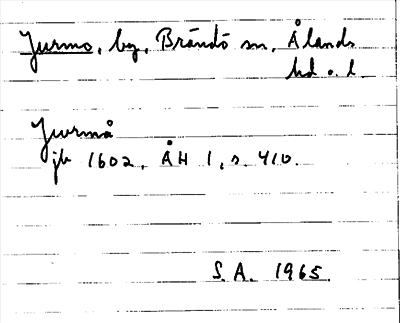 Jurmo, by, Brändö sn, Ålands
hd o. l.
Jwrmå
jb 1602. ÅH 1, s. 410.
S.A. 1965.